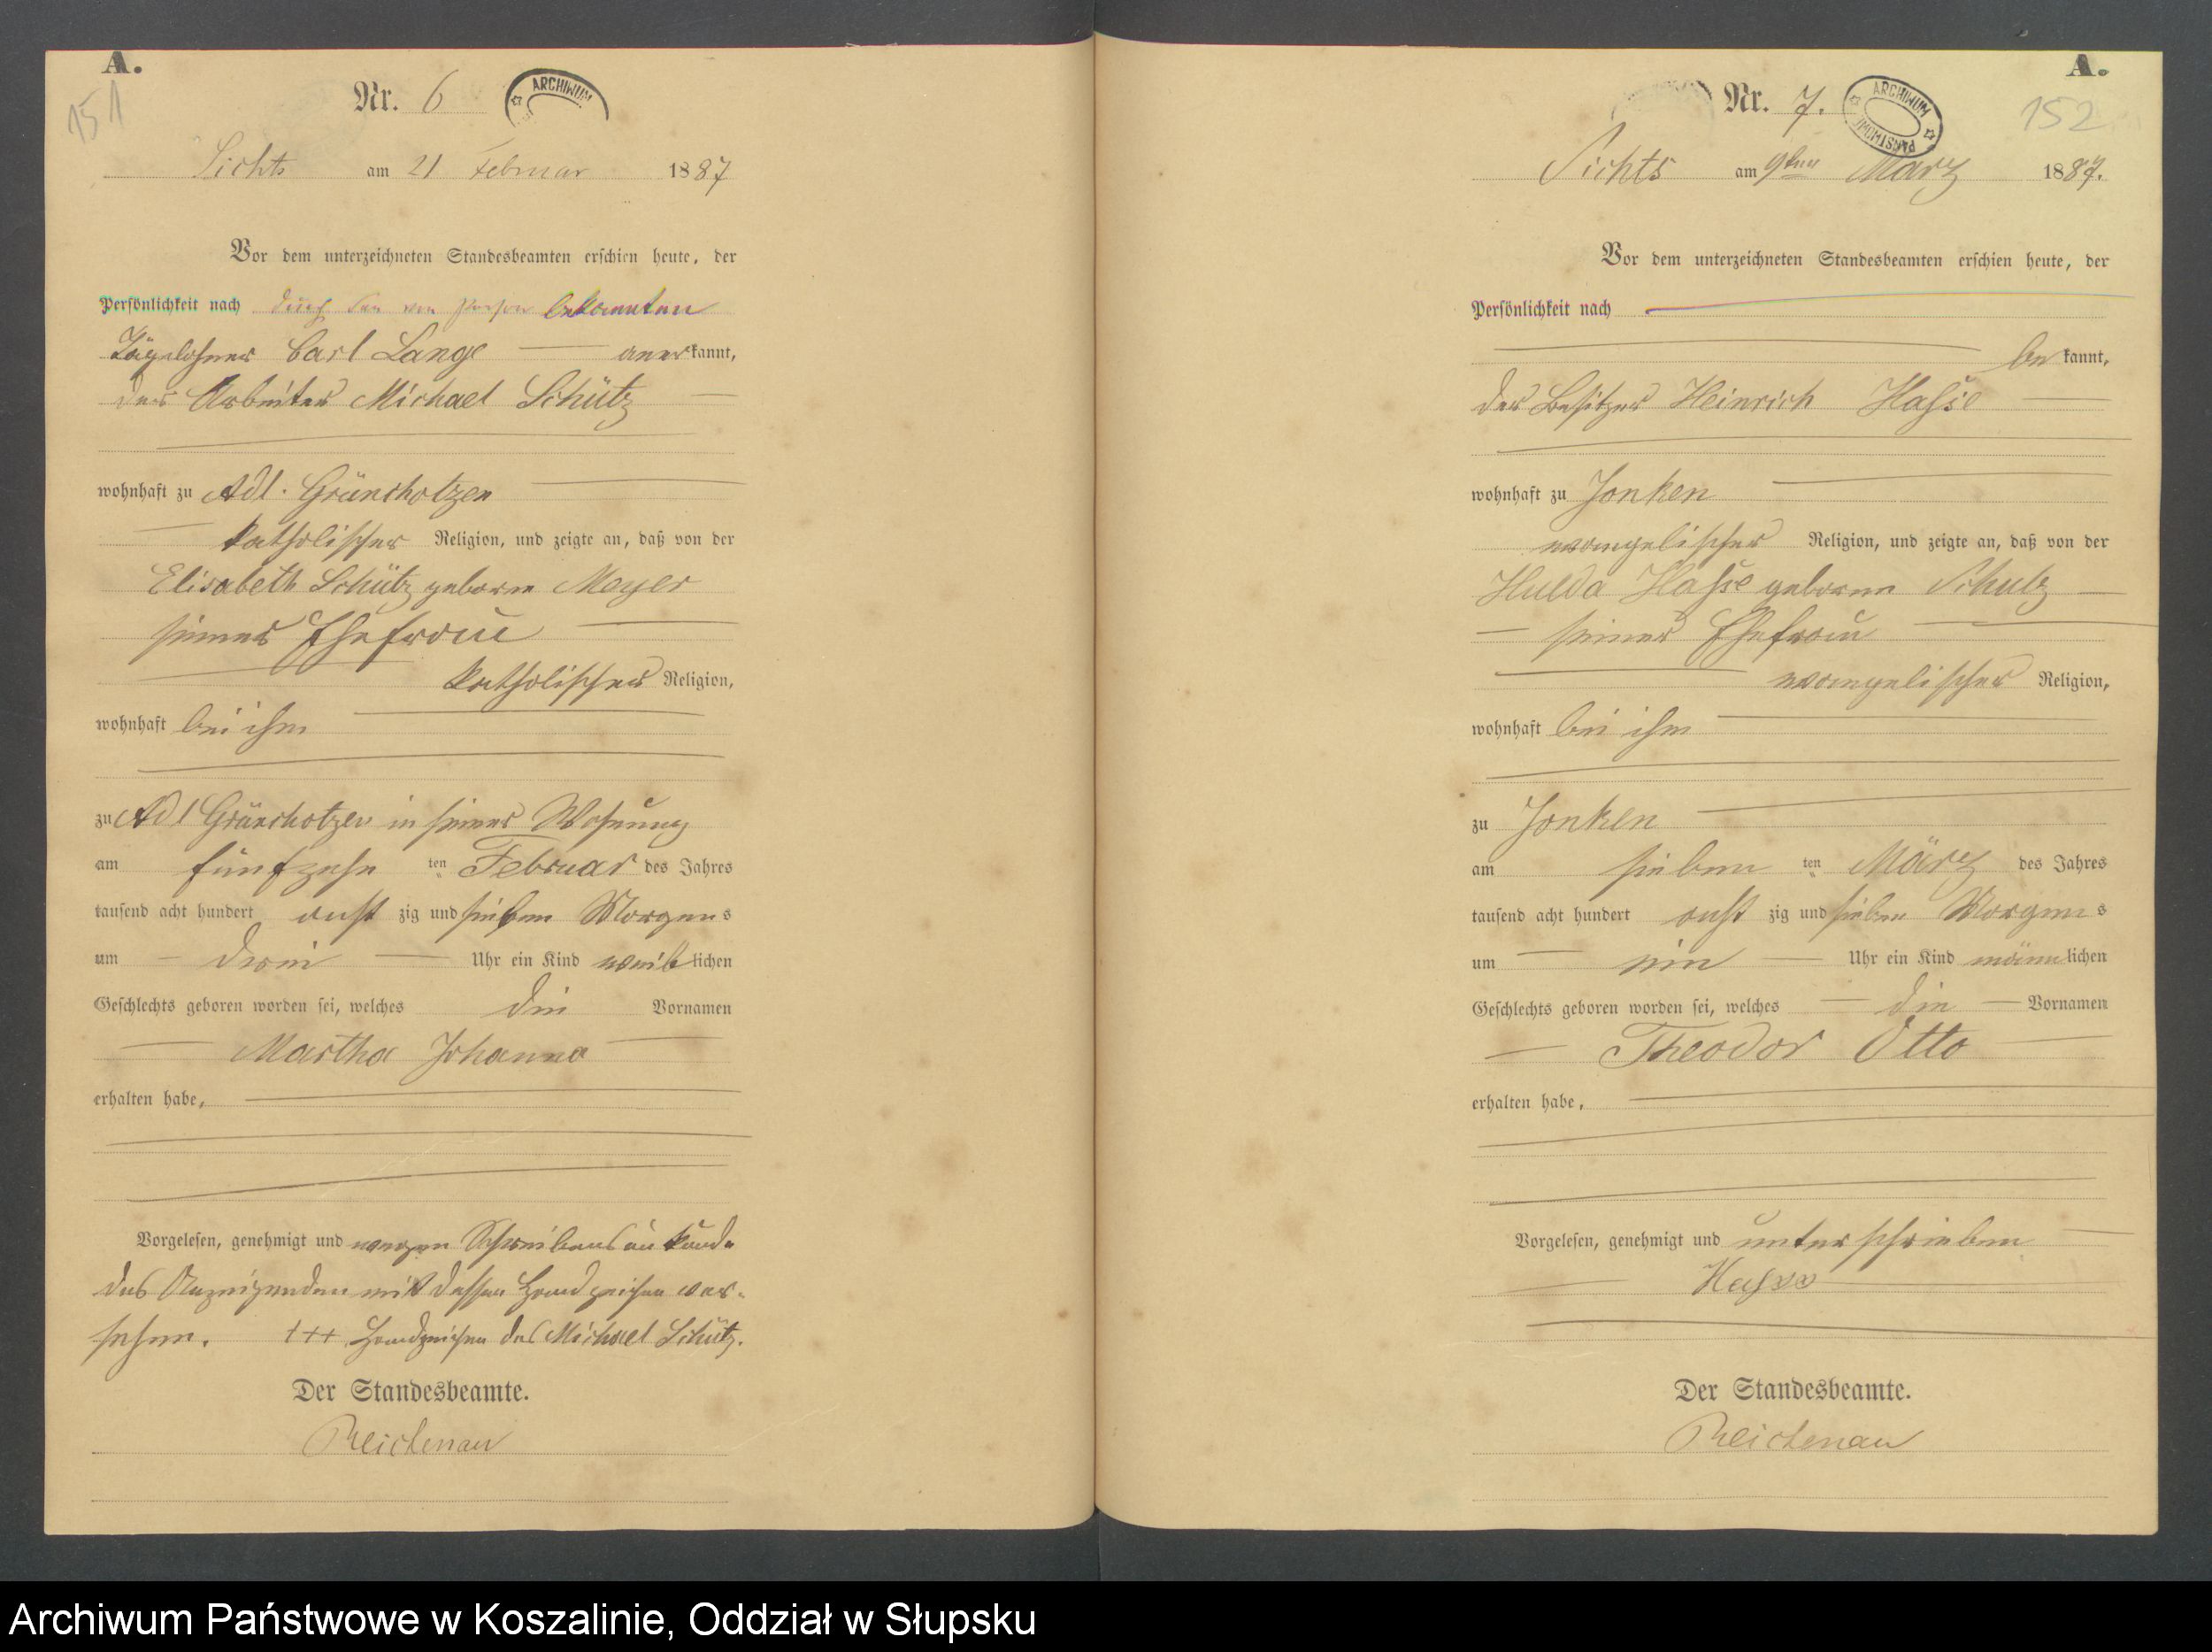 A.
151
Nr. 6
ARCHIWUM
Sichts am 21 Februar 1887
Vor dem unterzeichneten Standesbeamten erschien heute, der
Persönlichkeit nach durch den von Person bekannten
Tagelöhner Carl Lange anerkannt,
der Arbeiter Michael Schütz
wohnhaft zu Adl. Grünchotzen
katholischer Religion, und zeigte an, daß von der
Elisabeth Schütz geborene Meyer
seiner Ehefrau
katholischer Religion,
wohnhaft bei ihm
zu Adl Grünchotzen in seiner Wohnung
am fünfzehn ten Februar des Jahres
tausend acht hundert acht zig und sieben Morgens
um drei Uhr ein Kind weiblichen
Geschlechts geboren worden sei, welches die Vornamen
Martha Johanna
erhalten habe,
Vorgelesen, genehmigt und wegen Schreibensunkunde
des Anzeigenden mit dessen Handzeichen ver-
sehen. +++ Handzeichen des Michael Schütz.
Der Standesbeamte.
Reichenau
A.
152
Nr. 7.
ARCHIWUM PAŃSTWOWE
Sichts am 9ten März 1887.
Vor dem unterzeichneten Standesbeamten erschien heute, der
Persönlichkeit nach
bekannt,
der Besitzer Heinrich Hasse
wohnhaft zu Jonken
evangelischer Religion, und zeigte an, daß von der
Hulda Hasse geborene Schulz
seiner Ehefrau
evangelischer Religion,
wohnhaft bei ihm
zu Jonken
am sieben ten März des Jahres
tausend acht hundert acht zig und sieben Morgens
um ein Uhr ein Kind männlichen
Geschlechts geboren worden sei, welches die Vornamen
Theodor Otto
erhalten habe,
Vorgelesen, genehmigt und unterschrieben
Hasse
Der Standesbeamte.
Reichenau
Archiwum Państwowe w Koszalinie, Oddział w Słupsku